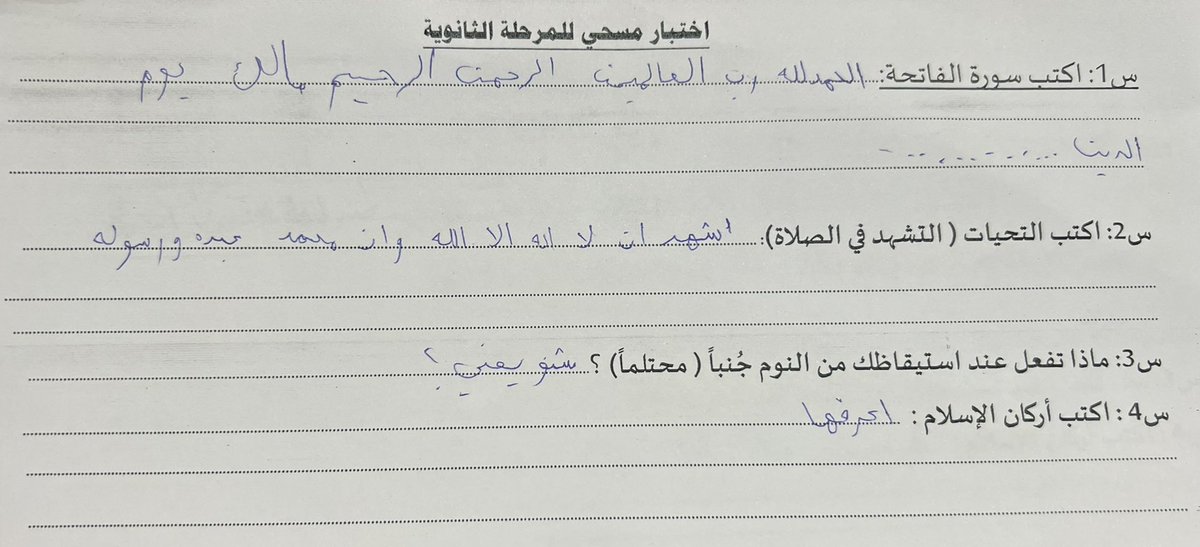 اختبار مسحي للمرحلة الثانوية
س1: اكتب سورة الفاتحة: الحمدلله رب العالمين الرحمن الرحيم مالك يوم
الدين ...........
س2: اكتب التحيات ( التشهد في الصلاة): اشهد ان لا اله الا الله وان محمد عبده ورسوله
س3: ماذا تفعل عند استيقاظك من النوم جُنباً ( محتلماً) ؟ شنو يعني ؟
س4: اكتب أركان الإسلام : اعرفها